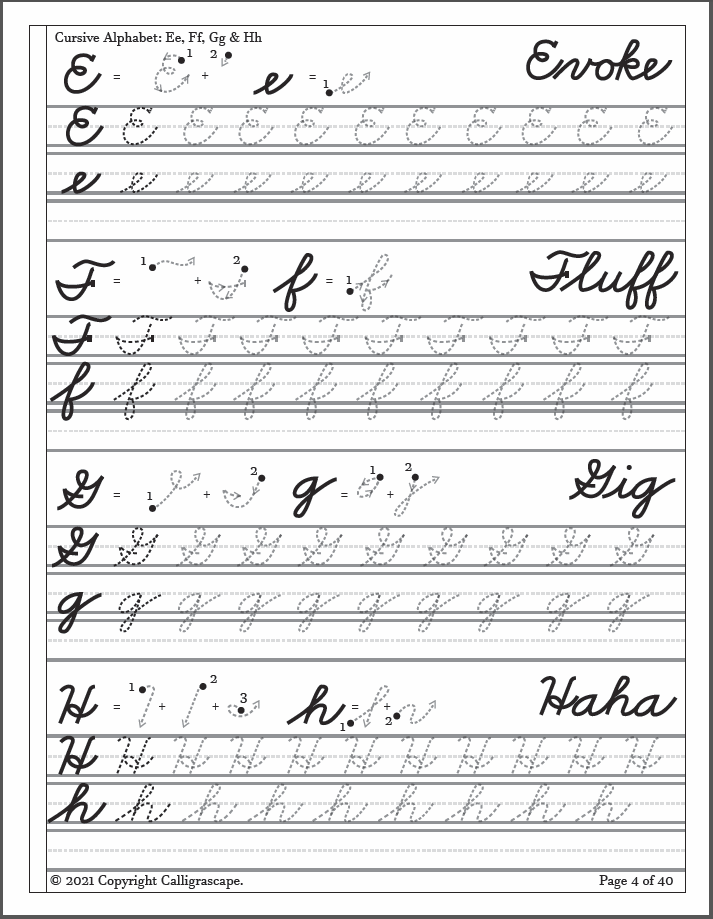 Cursive Alphabet: Ee, Ff, Gg & Hh
E = 1 + 2 e = 1 Evoke
E E E E E E E E E E E
e e e e e e e e e e e
F = 1 + 2 f = 1 Fluff
F F F F F F F F F F
f f f f f f f f f f
G = 1 + 2 g = 1 + 2 Gig
G G G G G G G G G G
g g g g g g g g g g
H = 1 + 2 + 3 h = 1 + 2 Haha
H H H H H H H H H H H
h h h h h h h h h h
© 2021 Copyright Calligrascape. Page 4 of 40